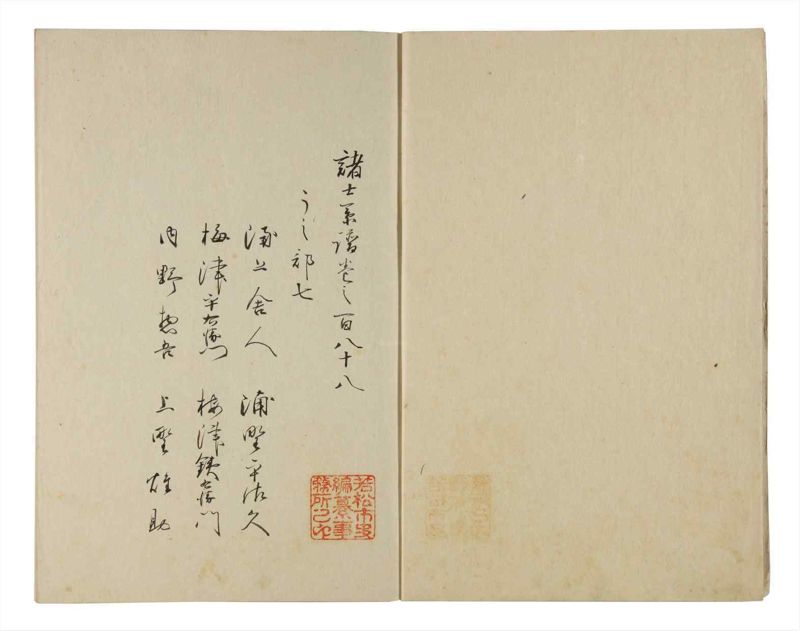 諸士系譜巻之百八十八
う之部七
浦上舎人　浦野平佐久
梅津平右衛門　梅津鉄右衛門
内野惣吾　上野雄助
若松市史
編纂事
務所之印